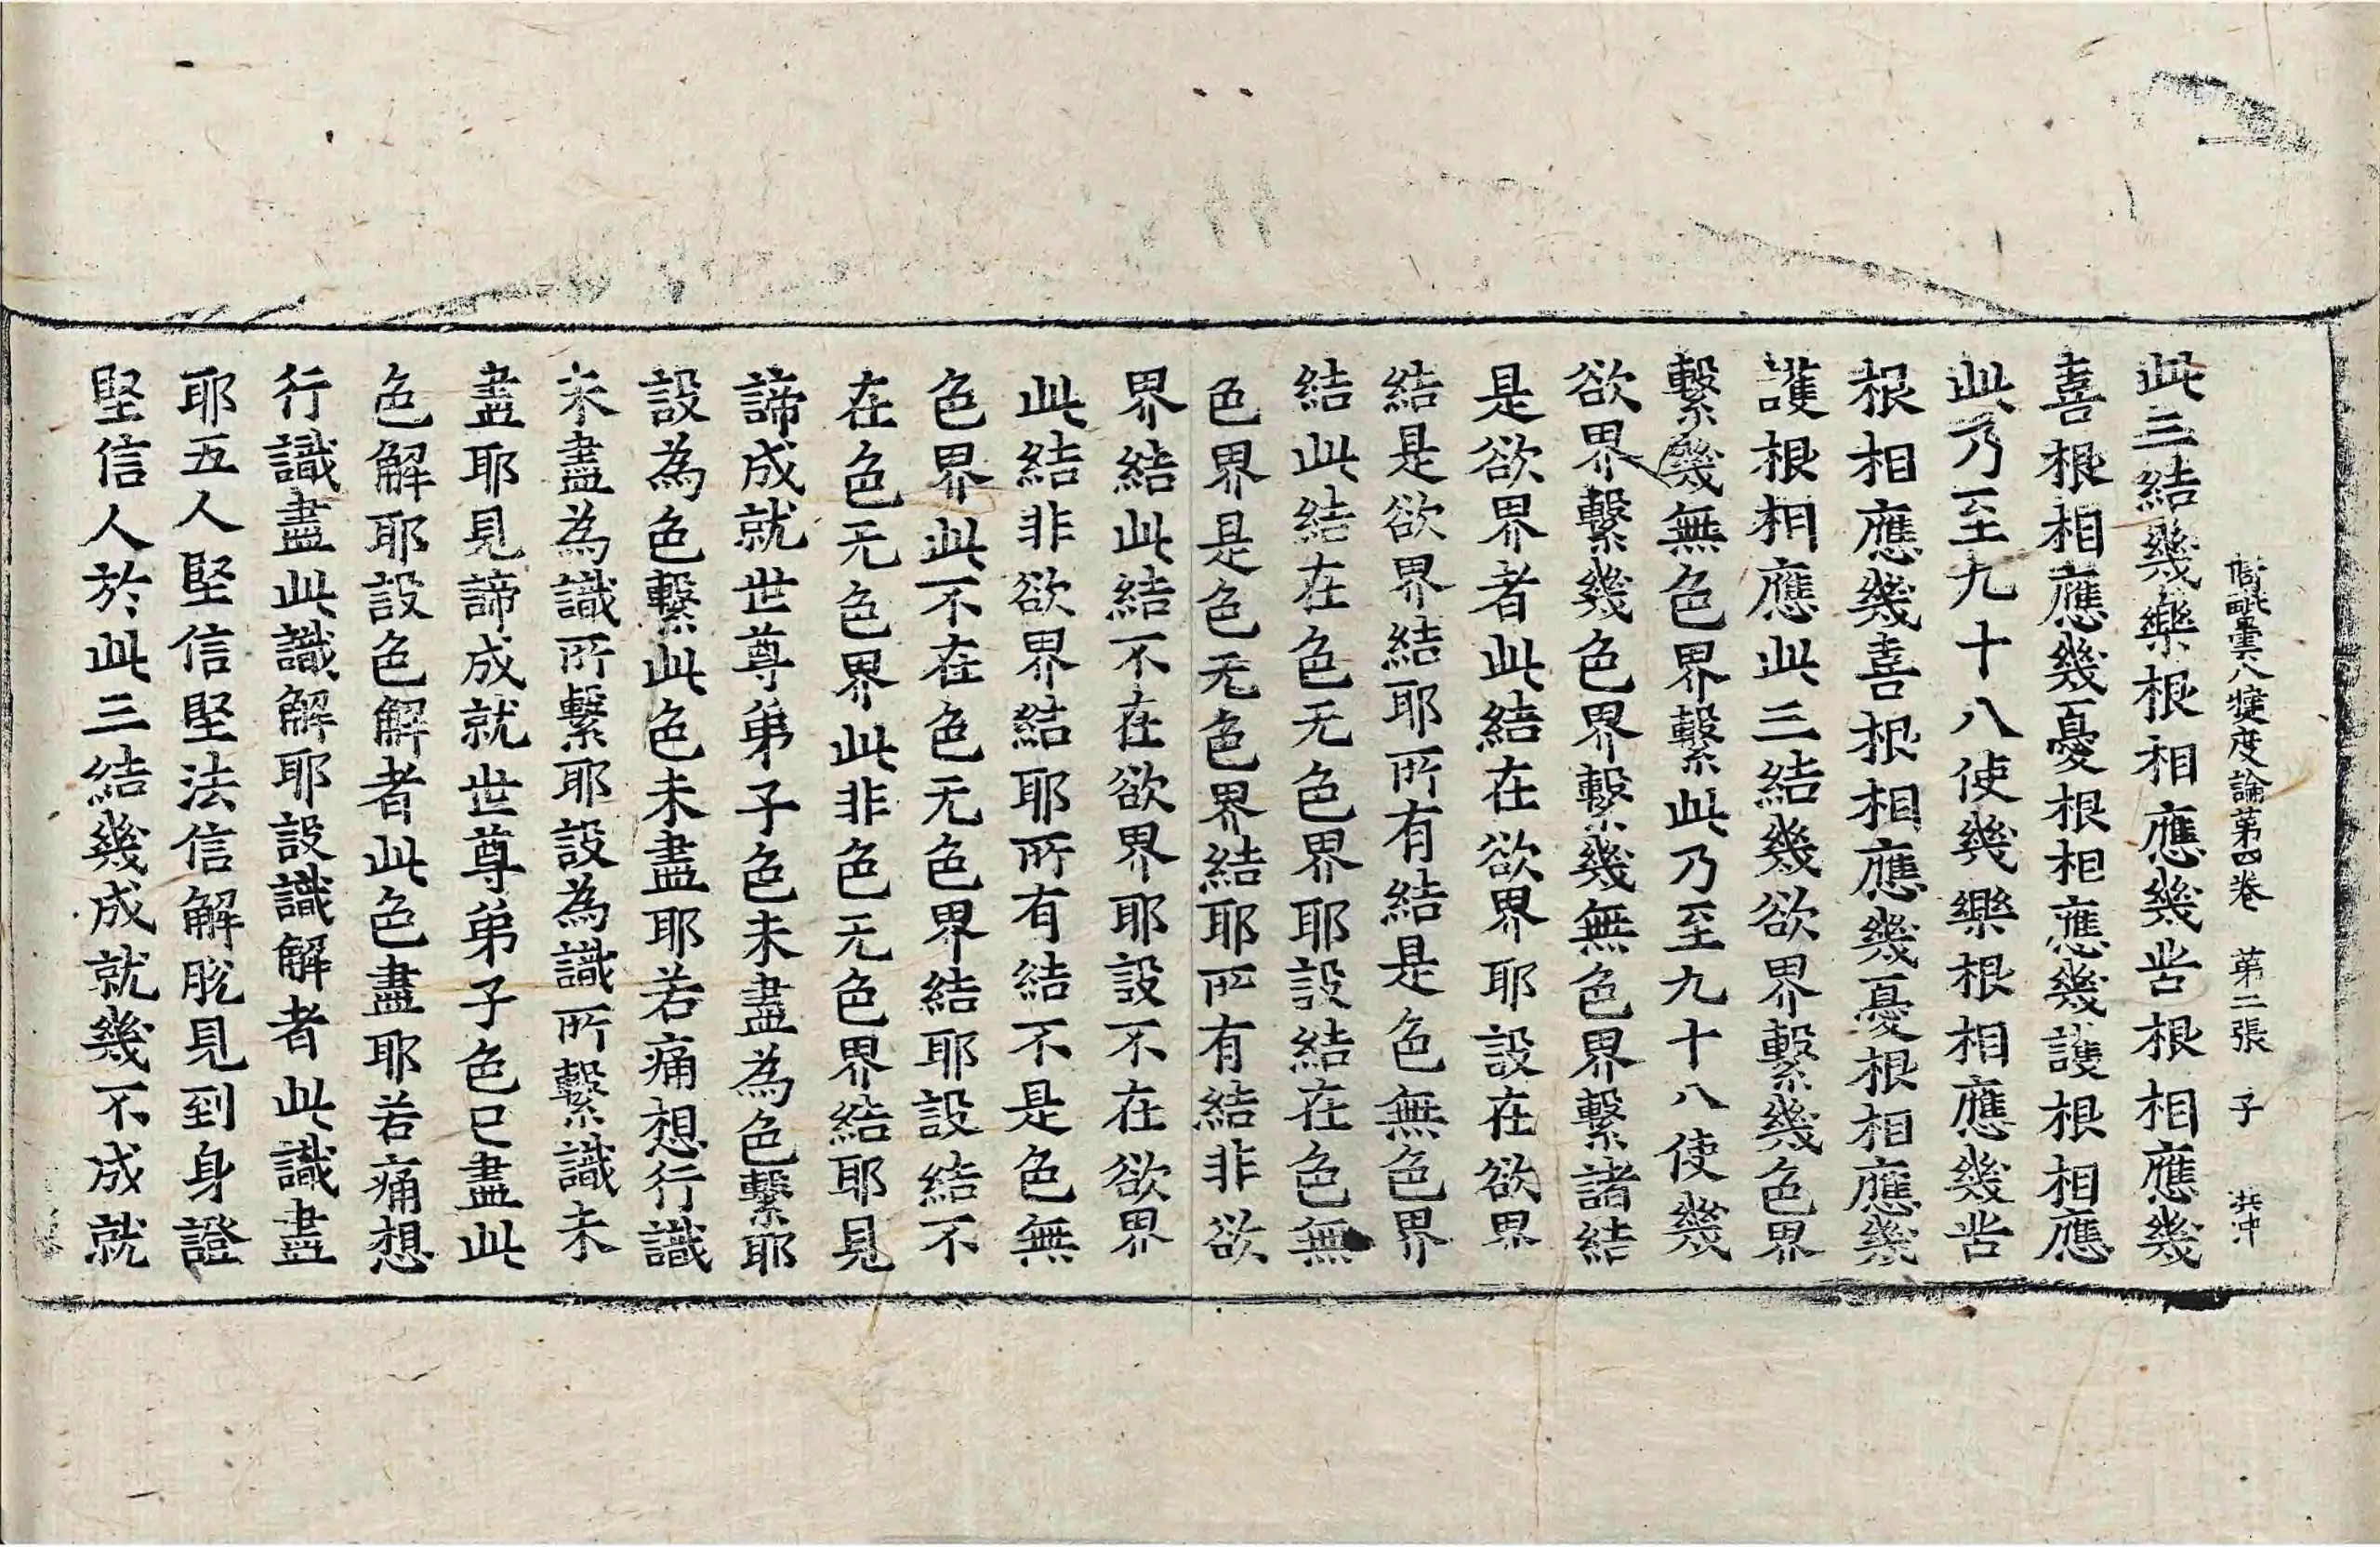 阿毗曇八犍度論第四卷　第二張　子
此三結幾樂根相應幾苦根相應幾
喜根相應幾憂根相應幾護根相應
此乃至九十八使幾樂根相應幾苦
根相應幾喜根相應幾憂根相應幾
護根相應此三結幾欲界繫幾色界
繫幾無色界繫此乃至九十八使幾
欲界繫幾色界繫幾無色界繫諸結
是欲界者此結在欲界耶設在欲界
結是欲界結耶所有結是色無色界
結此結在色无色界耶設結在色無
色界是色无色界結耶所有結非欲
界結此結不在欲界耶設不在欲界
此結非欲界結耶所有結不是色無
色界此不在色无色界結耶設結不
在色无色界此非色无色界結耶見
諦成就世尊弟子色未盡為色繫耶
設為色繫此色未盡耶若痛想行識
未盡為識所繫耶設為識所繫識未
盡耶見諦成就世尊弟子色已盡此
色解耶設色解者此色盡耶若痛想
行識盡此識解耶設識解者此識盡
耶五人堅信堅法信解脫見到身證
堅信人於此三結幾成就幾不成就